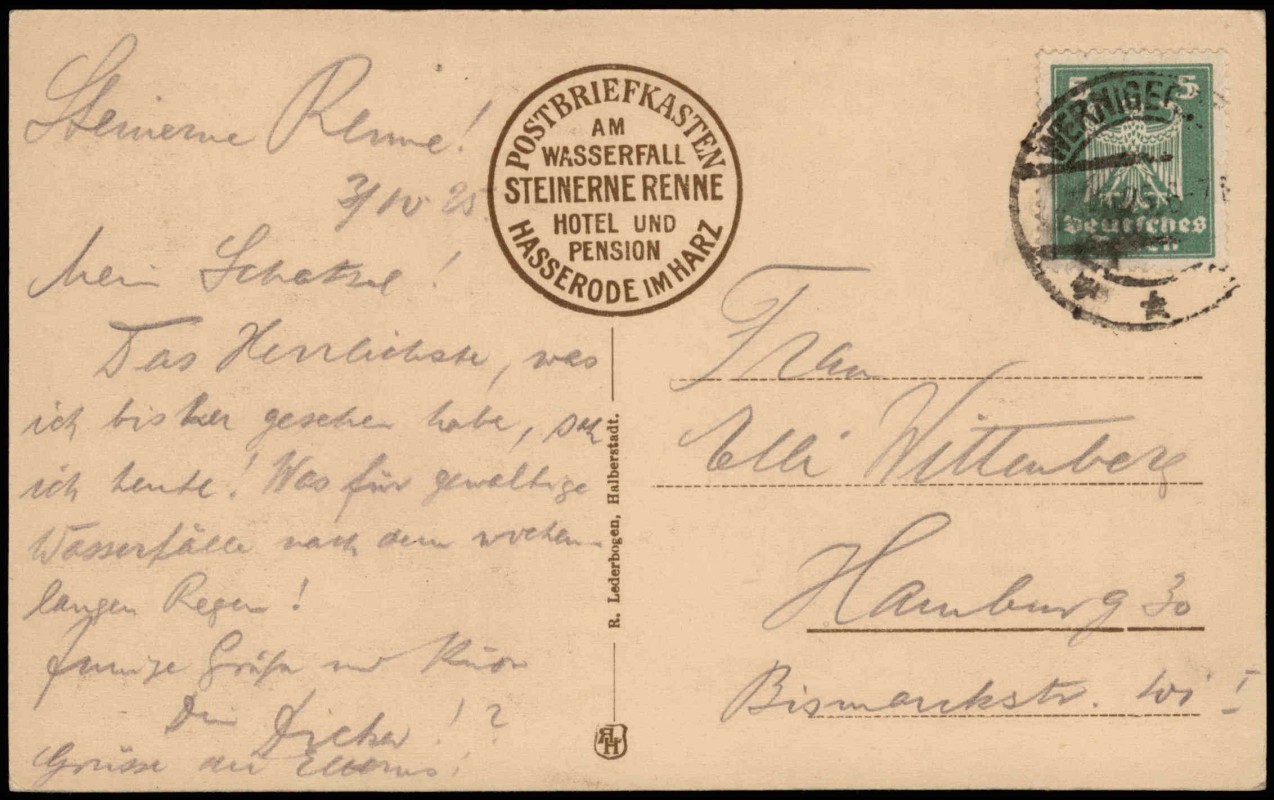 Steinerne Renne!
3/IV 25.
Mein Schatzel!
Das Herrlichste, was
ich bisher gesehen habe, sah
ich heute! Was für gewaltige
Wasserfälle nach dem wochen-
langen Regen!
Innige Grüße und Küsse
Dein Dicker!?
Grüsse den Elterns!
POSTBRIEFKASTEN
AM
WASSERFALL
STEINERNE RENNE
HOTEL UND
PENSION
HASSERODE IM HARZ
R. Lederbogen, Halberstadt.
RLH
5 5
Deutsches
WERNIGER
Frau
Elli Wittenberg
Hamburg 30
Bismarckstr.